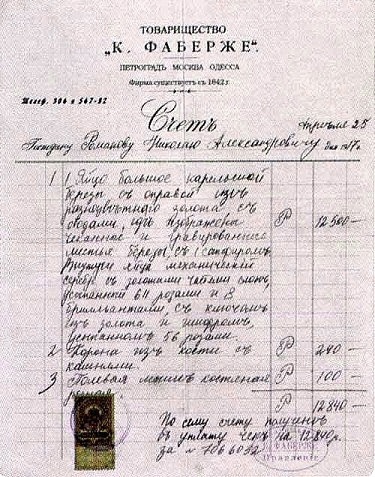 ТОВАРИЩЕСТВО
„К. ФАБЕРЖЕ“.
ПЕТРОГРАДЪ МОСКВА ОДЕССА
Фирма существуетъ съ 1842 г.
Телеф. 306 и 567-82
Счетъ
Апрѣля 25
Господину Романову Николаю Александровичу дня 1917 г.
1 1 Яйцо большое карельской
березы въ оправѣ изъ
разноцвѣтного золота съ
сводами, гдѣ изображены
чеканные и гравированные
листья березы, съ 1 сапфиромъ
Внутри яйца механическій
серебр съ золотыми частями слонъ,
усыпанный 611 розами и 8
брилльянтами, съ ключомъ
изъ золота и шифромъ,
усыпаннымъ 56 розами.
Р 12500 —
2 Корона изъ кости съ
камнями
Р 240 —
3 Полевая костеная
Р 100 —
Р 12840 —
По сему счету получено
въ уплату чекъ на 12,840 р.
за № 706 6032
ФАБЕРЖЕ
Правленіе